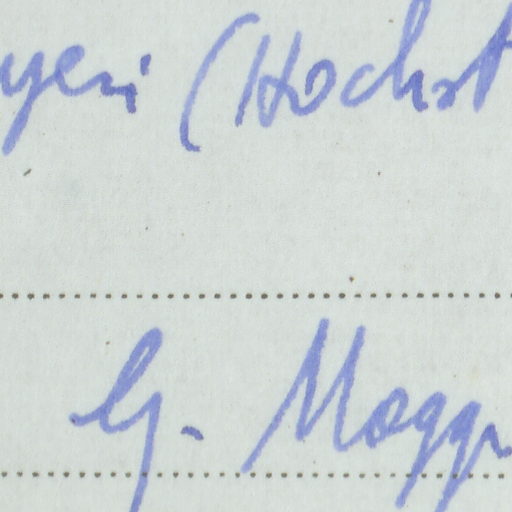 yeri (Hochst
G. Moggi